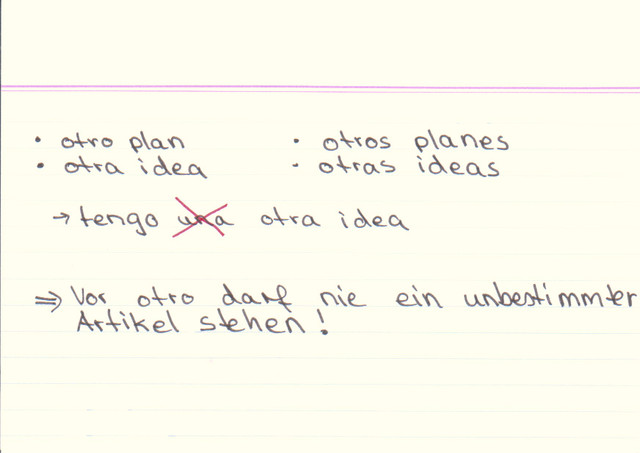 • otro plan • otros planes
• otra idea - otras ideas
→ tengo una otra idea
⇒ Vor otro darf nie ein unbestimmter
Artikel stehen!